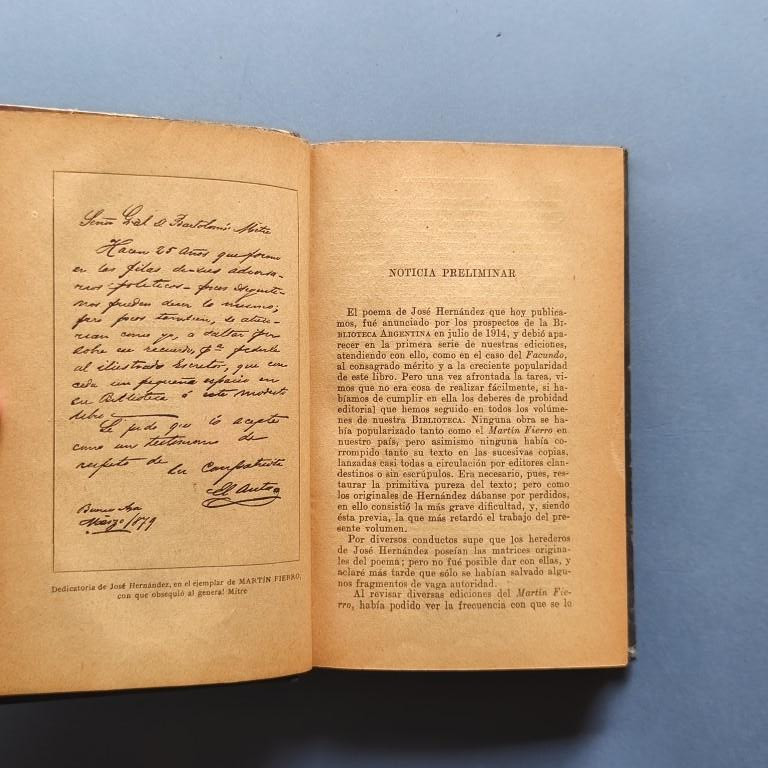 Señor Gral D. Bartolomé Mitre
Hacen 25 años que formo
en las filas de sus adversa-
rios políticos — pocos Argenti-
nos pueden decir lo mismo;
pero pocos tambien, se atreve-
rian como yo, a saltar por
sobre ese recuerdo, pa. pedirle
al ilustrado Escritor, que con
ceda un pequeño espacio en
su Biblioteca á este modesto
libro.
Le pido que lo acepte
como un testimonio de
respeto de su compatriota
El Autor
Buenos Ays
Marzo/1879
Dedicatoria de José Hernández, en el ejemplar de MARTÍN FIERRO,
con que obsequió al general Mitre
NOTICIA PRELIMINAR
El poema de José Hernández que hoy publica-
mos, fué anunciado por los prospectos de la BI-
BLIOTECA ARGENTINA en julio de 1914, y debió a-
parecer en la primera serie de nuestras ediciones,
atendiendo con ello, como en el caso del Facundo,
al consagrado mérito y a la creciente popularidad
de este libro. Pero una vez afrontada la tarea, vi-
mos que no era cosa de realizar fácilmente, si ha-
bíamos de cumplir en ella los deberes de probidad
editorial que hemos seguido en todos los volúme-
nes de nuestra BIBLIOTECA. Ninguna obra se ha-
bía popularizado tanto como el Martín Fierro en
nuestro país, pero asimismo ninguna había co-
rrompido tanto su texto en las sucesivas copias,
lanzadas casi todas a circulación por editores clan-
destinos o sin escrúpulos. Era necesario, pues, res-
taurar la primitiva pureza del texto; pero como
los originales de Hernández dábanse por perdidos,
en ello consistió la más grave dificultad, y, siendo
ésta previa, la que más retardó el trabajo del pre-
sente volumen.
Por diversos conductos supe que los herederos
de José Hernández poseían las matrices origina-
les del poema; pero no fué posible dar con ellas, y
aclaré más tarde que sólo se habían salvado algu-
nos fragmentos de vaga autoridad.
Al revisar diversas ediciones del Martín Fie-
rro, había podido ver la frecuencia con que se lo